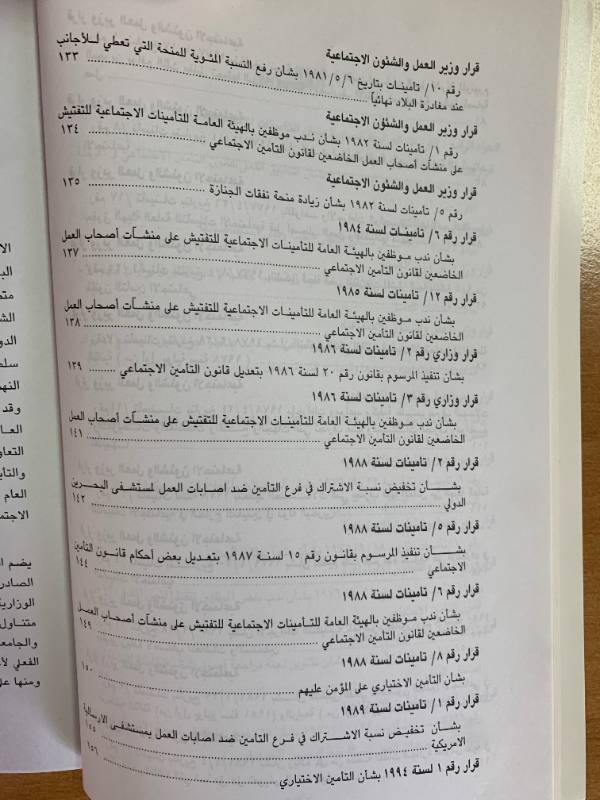 قرار وزير العمل والشئون الاجتماعية
رقم ١٠/ تامينات بتاريخ ١٩٨١/٥/٦ بشأن رفع النسبة المئوية للمنحة التي تعطي للأجانب
عند مغادرة البلاد نهائياً ........ ١٣٣
قرار وزير العمل والشئون الاجتماعية
رقم ١/ تامينات لسنة ١٩٨٢ بشأن ندب موظفين بالهيئة العامة للتأمينات الاجتماعية للتفتيش
على منشآت أصحاب العمل الخاضعين لقانون التأمين الاجتماعي ........ ١٣٤
قرار وزير العمل والشئون الاجتماعية
رقم ٥/ تامينات لسنة ١٩٨٢ بشأن زيادة منحة نفقات الجنازة ........ ١٣٥
قرار رقم ٦/ تأمينات لسنة ١٩٨٤
بشأن ندب موظفين بالهيئة العامة للتأمينات الاجتماعية للتفتيش على منشآت أصحاب العمل
الخاضعين لقانون التأمين الاجتماعي ........ ١٣٧
قرار رقم ١٢/ تأمينات لسنة ١٩٨٥
بشأن ندب موظفين بالهيئة العامة للتأمينات الاجتماعية للتفتيش على منشآت أصحاب العمل
الخاضعين لقانون التأمين الاجتماعي ........ ١٣٨
قرار وزاري رقم ٢/ تأمينات لسنة ١٩٨٦
بشأن تنفيذ المرسوم بقانون رقم ٢٠ لسنة ١٩٨٦ بتعديل قانون التأمين الاجتماعي ........ ١٣٩
قرار وزاري رقم ٣/ تأمينات لسنة ١٩٨٦
بشأن ندب موظفين بالهيئة العامة للتأمينات الاجتماعية للتفتيش على منشآت أصحاب العمل
الخاضعين لقانون التأمين الاجتماعي ........ ١٤١
قرار رقم ٢/ تأمينات لسنة ١٩٨٨
بشأن تخفيض نسبة الاشتراك في فرع التأمين ضد اصابات العمل لمستشفى البحرين
الدولي ........ ١٤٢
قرار رقم ٥/ تأمينات لسنة ١٩٨٨
بشأن تنفيذ المرسوم بقانون رقم ١٥ لسنة ١٩٨٧ بتعديل بعض أحكام قانون التأمين
الاجتماعي ........ ١٤٤
قرار رقم ٦/ تأمينات لسنة ١٩٨٨
بشأن ندب موظفين بالهيئة العامة للتأمينات الاجتماعية للتفتيش على منشآت أصحاب العمل
الخاضعين لقانون التأمين الاجتماعي ........ ١٤٩
قرار رقم ٨/ تأمينات لسنة ١٩٨٨
بشأن التأمين الاختياري على المؤمن عليهم ........ ١٥٠
قرار رقم ١/ تأمينات لسنة ١٩٨٩
بشأن تخفيض نسبة الاشتراك في فرع التأمين ضد اصابات العمل بمستشفى الارسالية
الامريكية ........ ١٥٥
قرار رقم ١ لسنة ١٩٩٤ بشأن التأمين الاختياري ........ ١٥٦